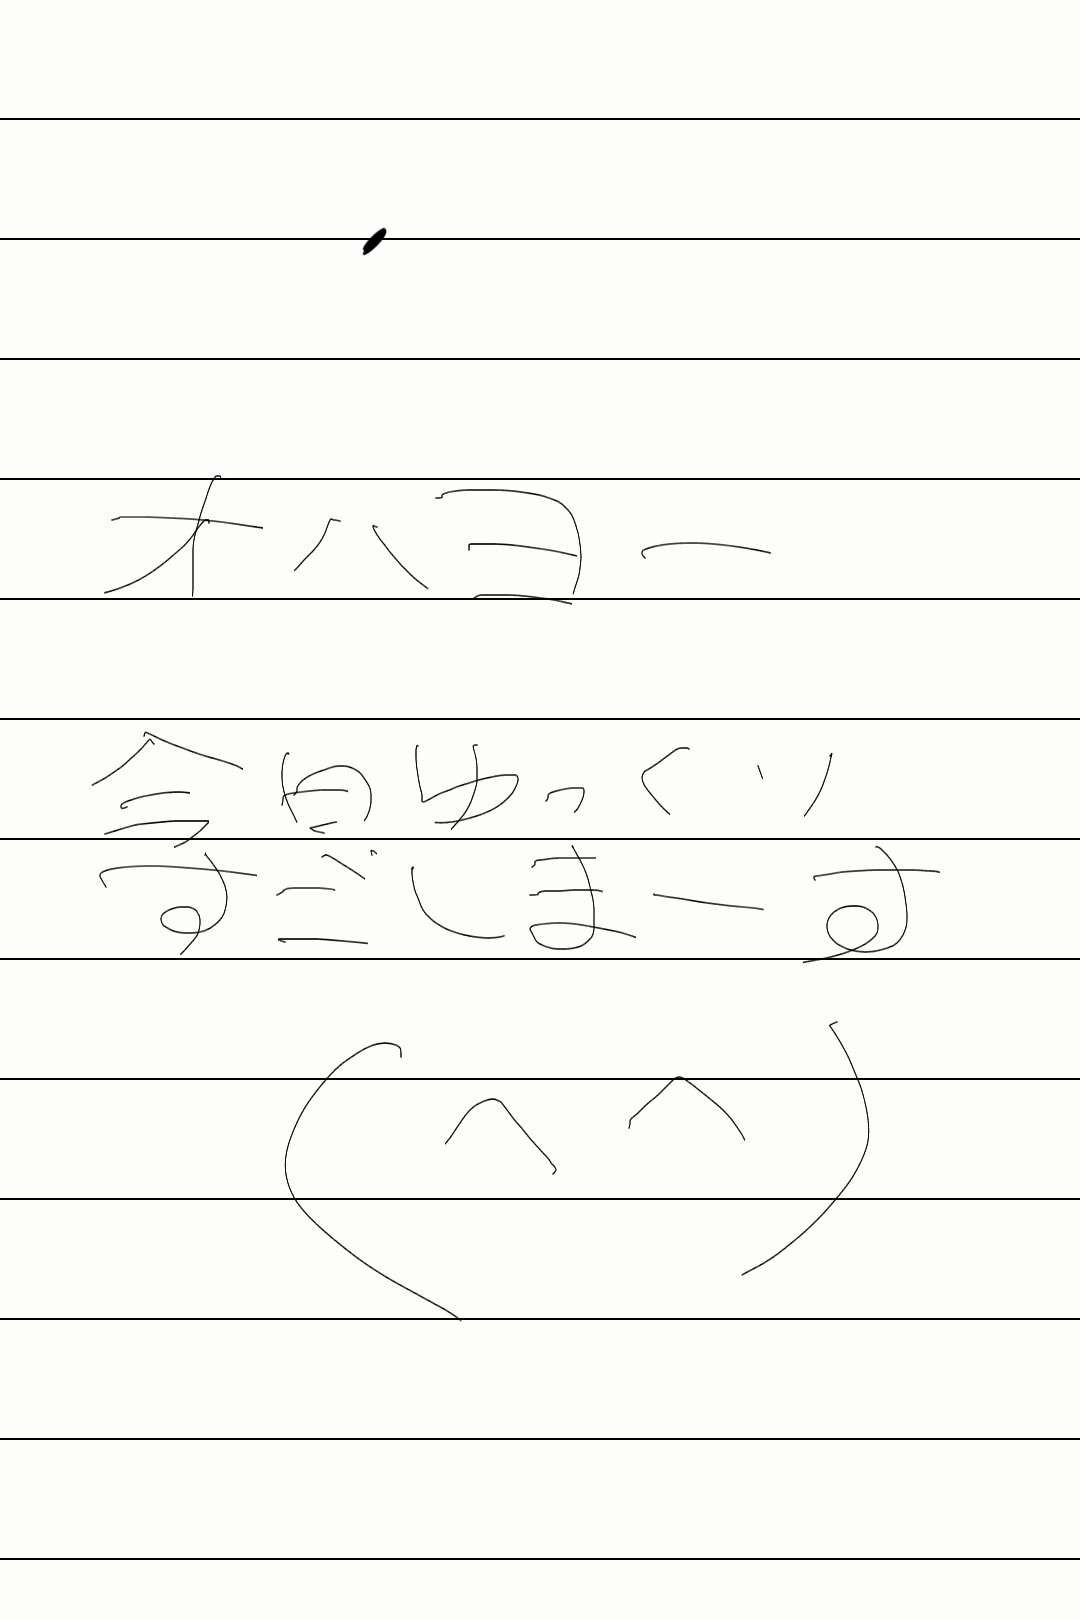 オハヨー
今日ゆっくり
すごしまーす
(^^)